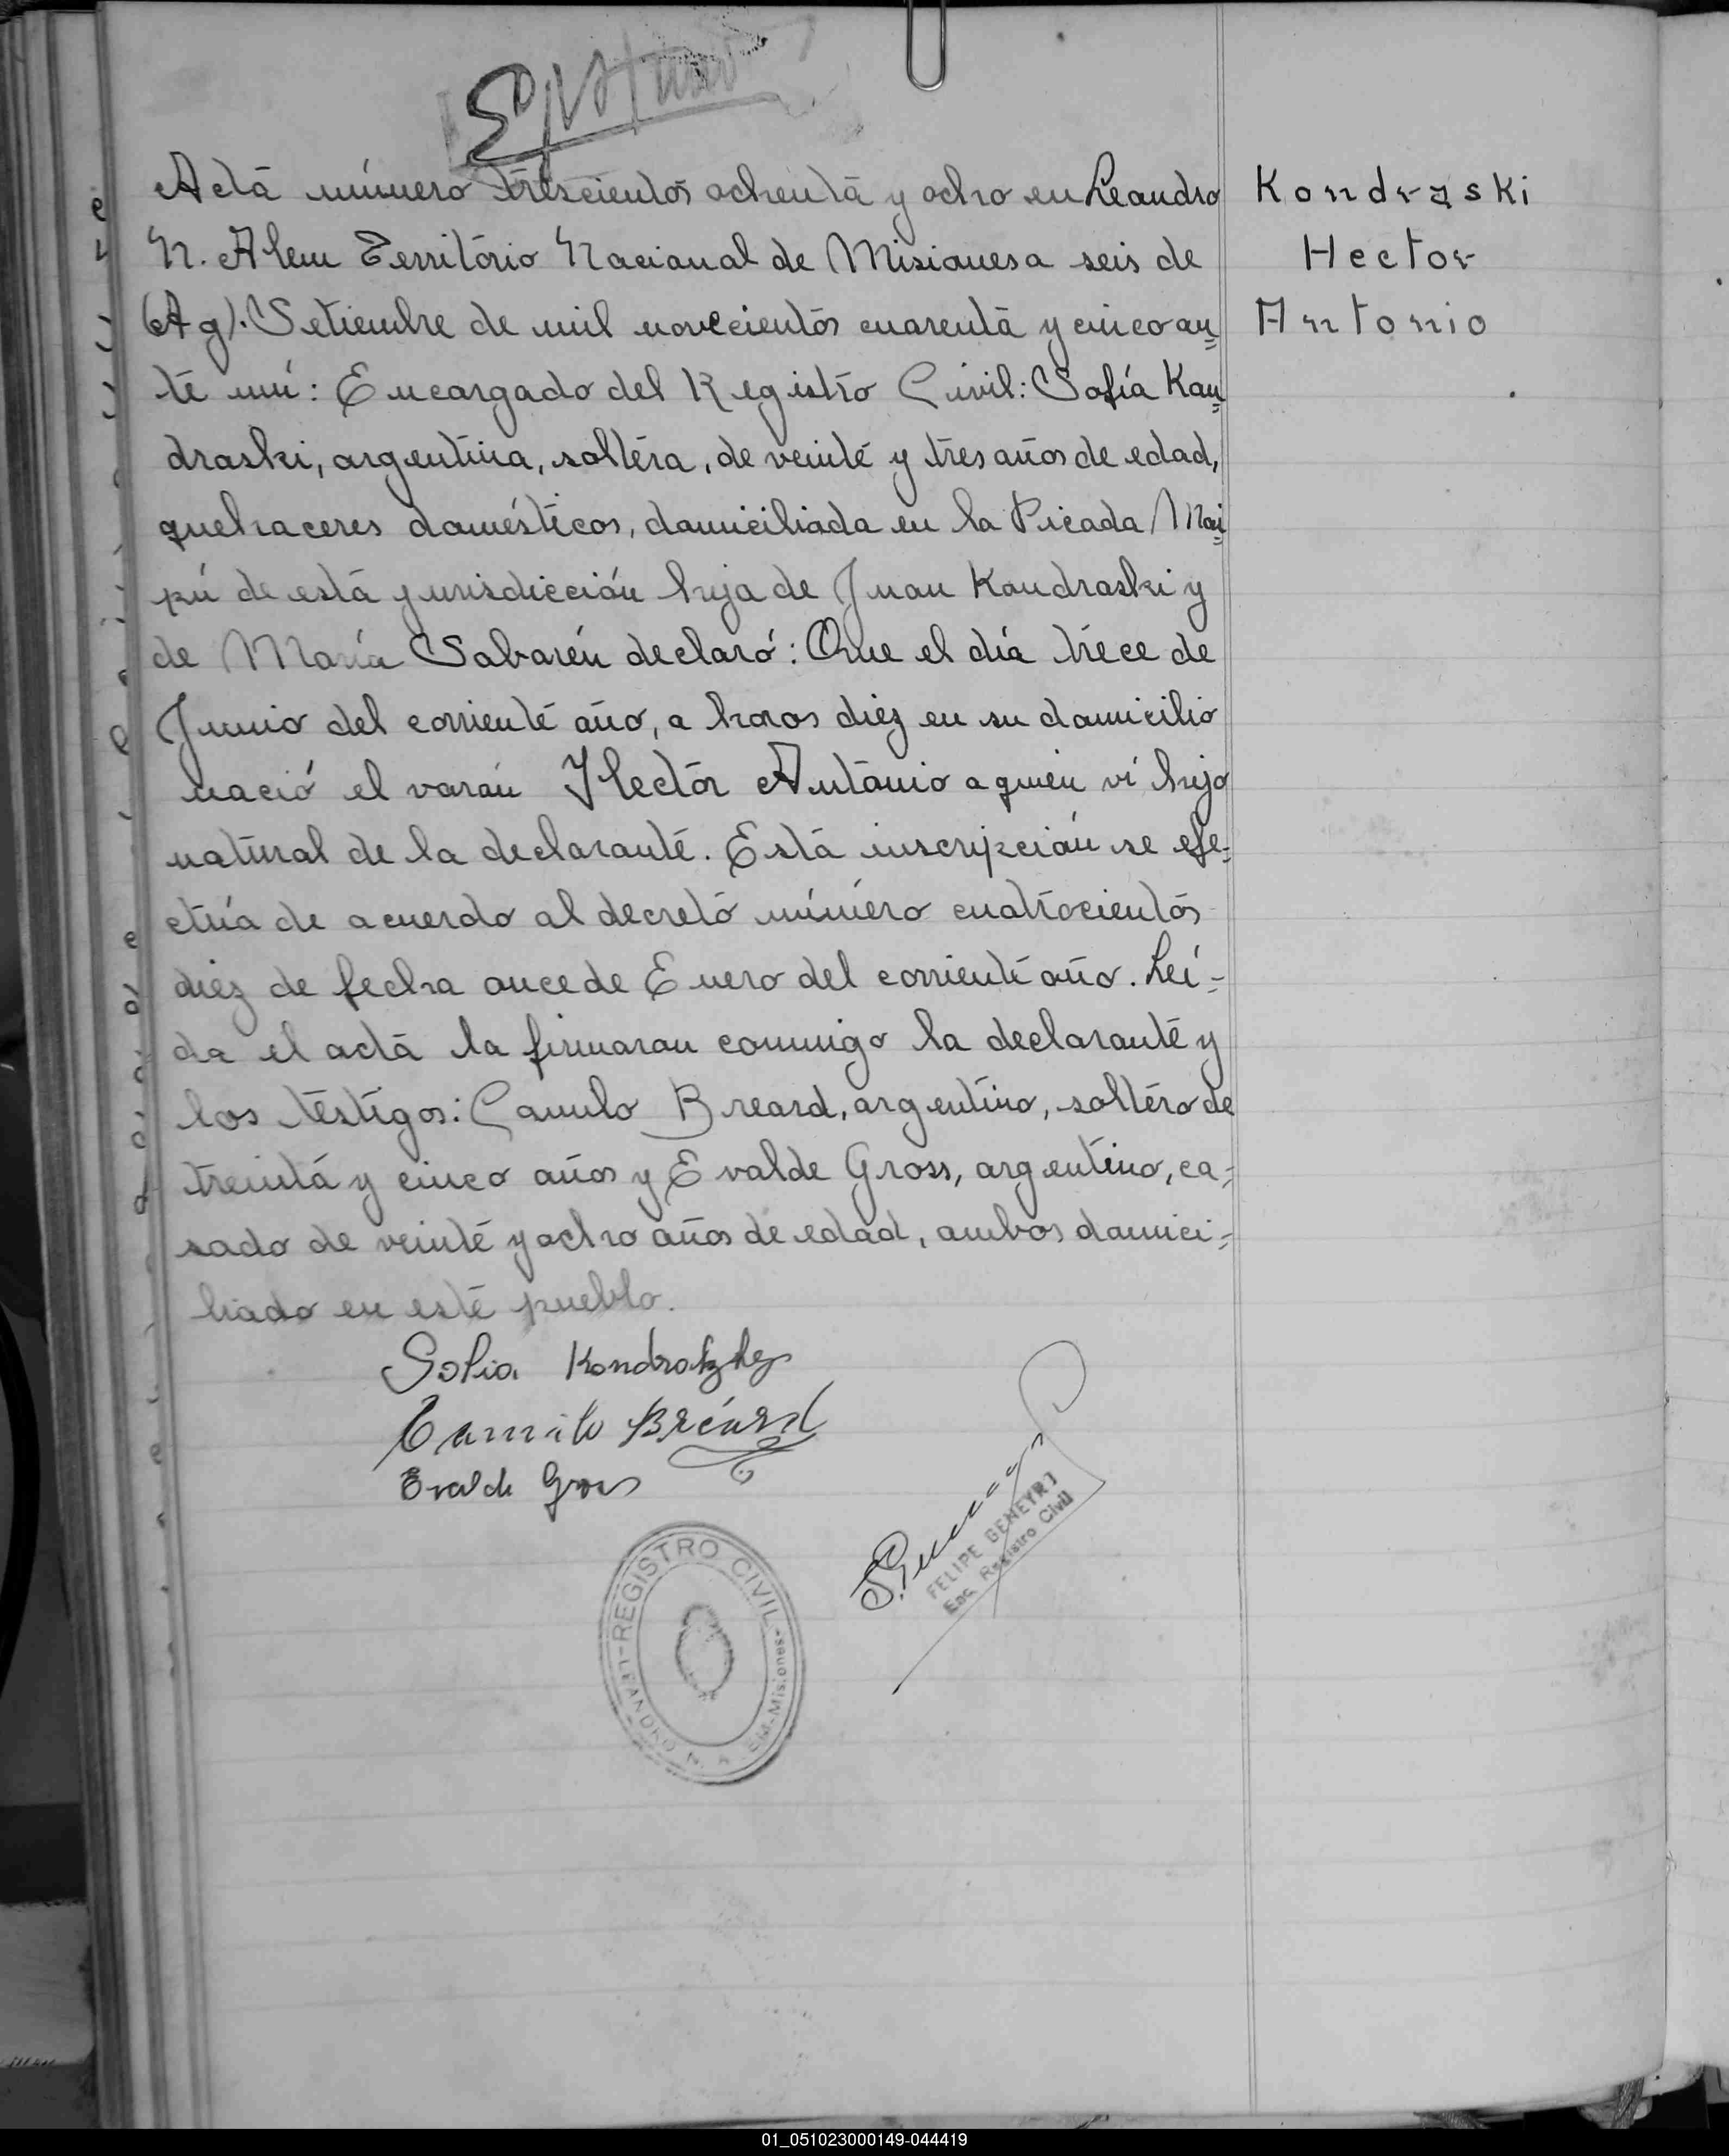 Acta número trescientos ochenta y ocho en Leandro
N. Alem Território Nacional de Misiones a seis de
(Ag). Setiembre de mil novecientos cuarenta y cinco an=
te mí: Encargado del Registro Civil: Sofía Kon=
draski, argentina, soltera, de veinte y tres años de edad,
quehaceres domésticos, domiciliada en la Picada Mai=
pú de está jurisdicción hija de Juan Kondraski y
de María Sabarén declaró: Que el día trece de
Junio del corriente año, a horas diez en su domicilio
nació el varón Hector Antonio a quien ví hijo
natural de la declarante. Está inscripción se efe=
ctúa de acuerdo al decreto número cuatrocientos
diez de fecha once de Enero del corriente año. Leí=
da el acta la firmaron conmigo la declarante y
los testigos: Camilo Breard, argentino, soltero de
treinta y cinco años y Evalde Gross, argentino, ca=
sado de veinte y ocho años de edad, ambos domici=
liado en esté pueblo.
Kondraski
Hector
Antonio
Sofia Kondratzky
Camilo Bréard
Evalde Gross
FELIPE GENEYRT
Enc. Registro Civil
REGISTRO CIVIL
LEANDRO N. ALEM-Misiones-
01_051023000149-044419